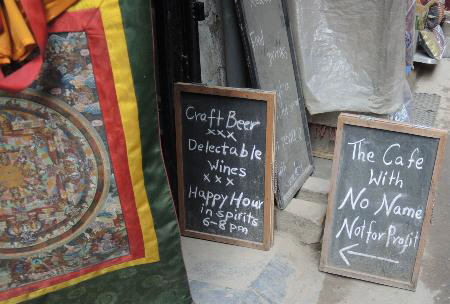 Craft Beer
xxx
Delectable
Wines
xxx
Happy Hour
in spirits
6-8pm
The Cafe
With
No Name
Not for Profit